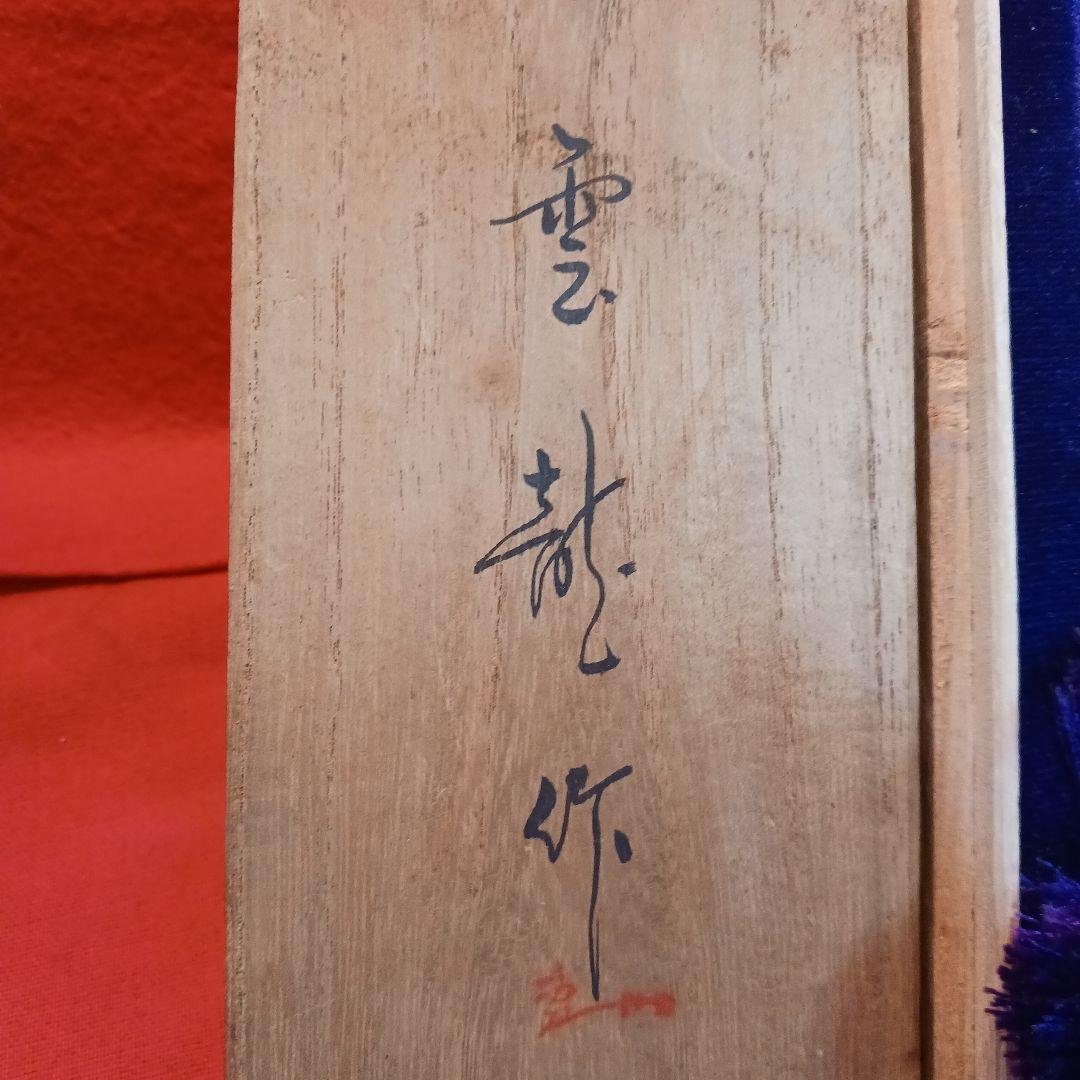 雲龍作